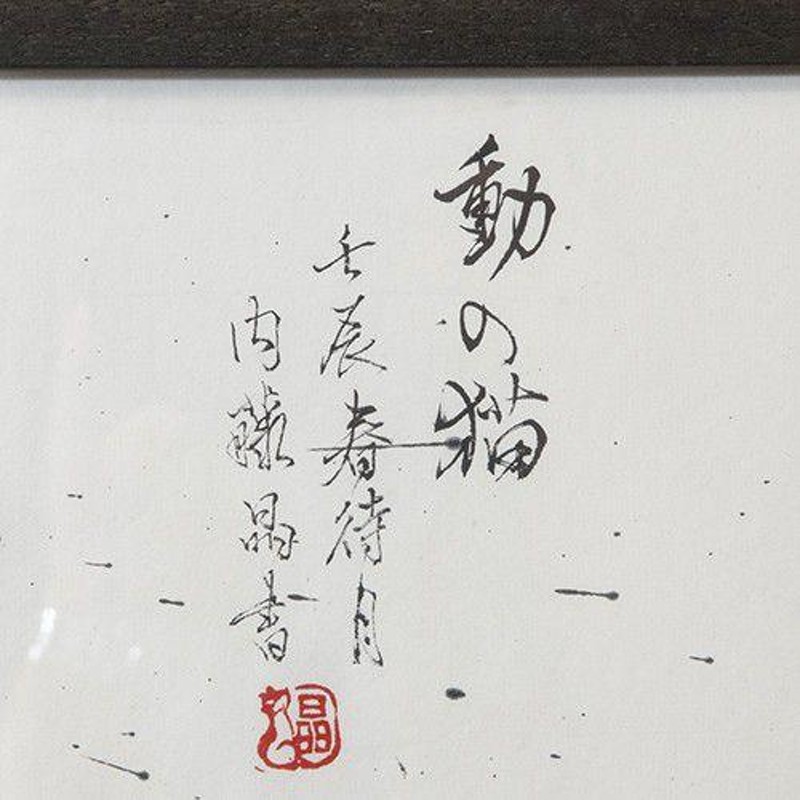 動の猫
壬辰春待月
内藤晶書
晶